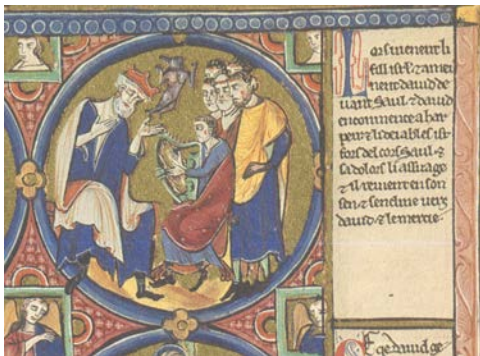 Ici uienent li
fill isrl'. & amei
nent dauid de
uant Saul. & dauid
encomence a har
peir. & li deiables ist
fors del cors Saul. &
sa dolors li assuago
& il reuient en son
sen. & sencline uers
dauid. & le mercie.
Ce qe dauid ge